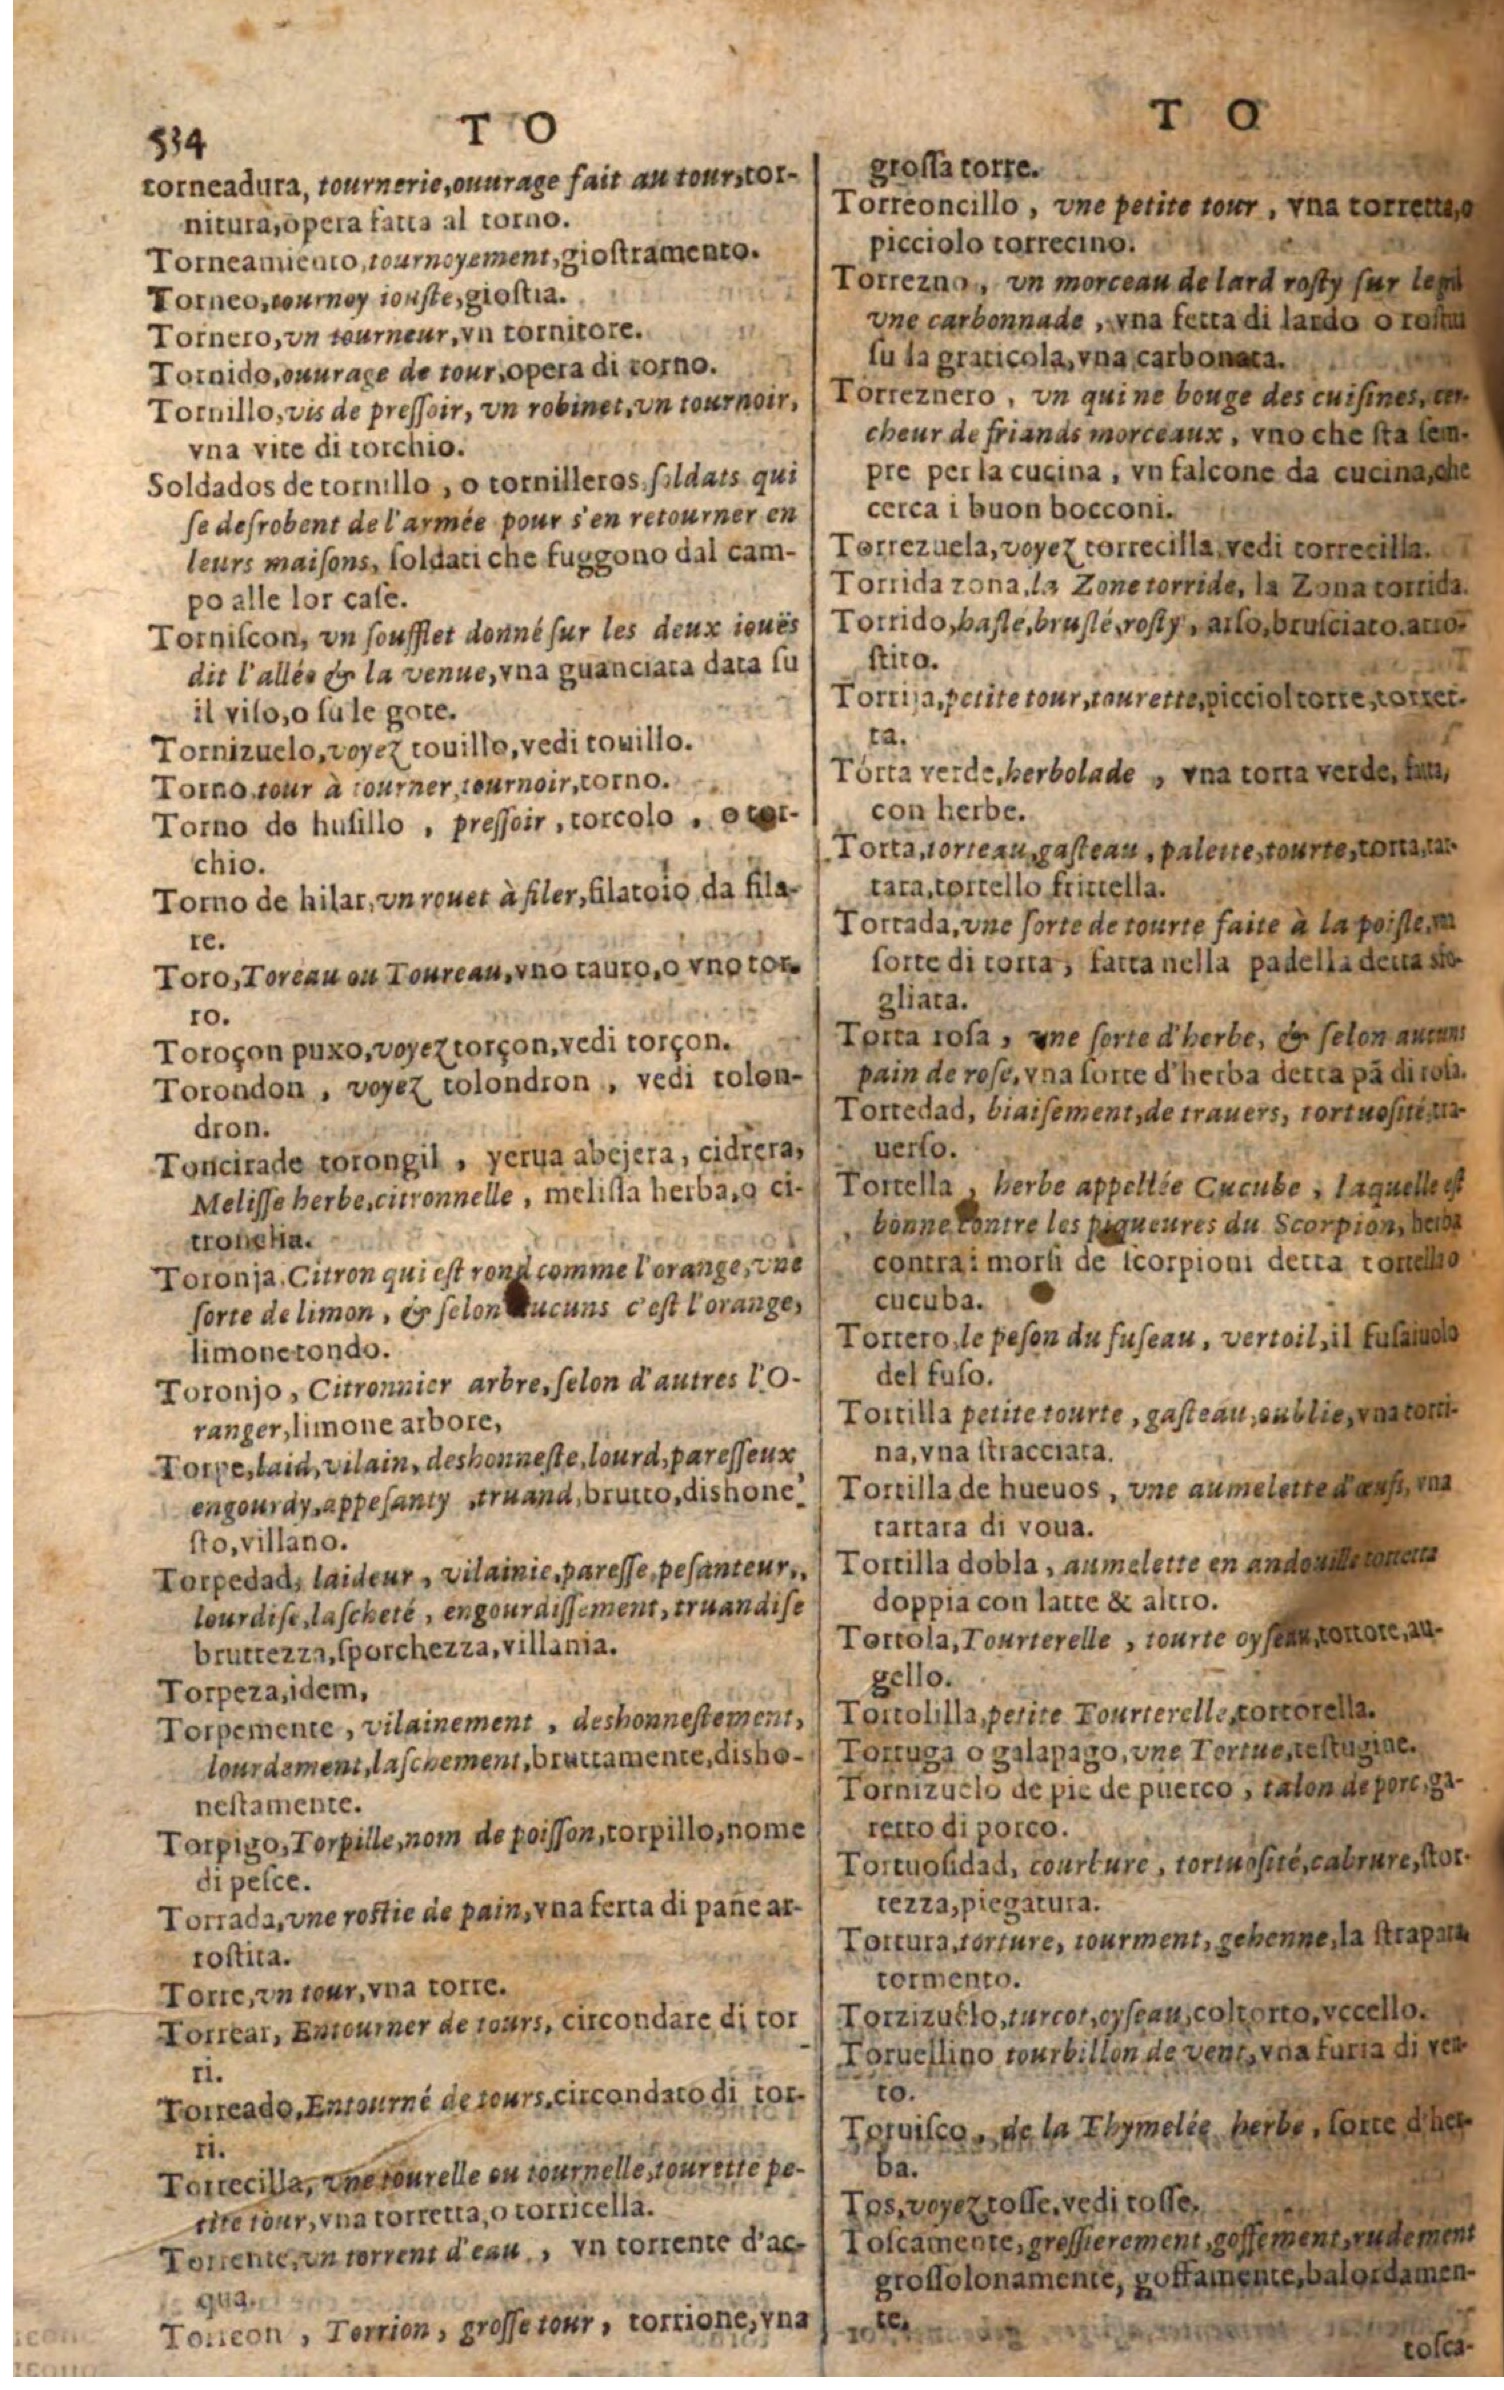 534
T O
torneadura, tournerie, ouurage fait au tour, tor-
nitura, opera fatta al torno.
Torneamiento, tournoyement, giostramento.
Torneo, tournoy iouſte, gioſtra.
Tornero, vn tourneur, vn tornitore.
Tornido, ouurage de tour, opera di torno.
Tornillo, vis de preſſoir, vn robinet, vn tournoir,
vna vite di torchio.
Soldados de tornillo, o tornilleros, ſoldats qui
ſe deſrobent de l'armée pour s'en retourner en
leurs maiſons, ſoldati che fuggono dal cam-
po alle lor caſe.
Torniſcon, vn ſoufflet donné ſur les deux iouës
dit l'allée & la venue, vna guanciata data ſu
il viſo, o ſu le gote.
Tornizuelo, voyez touillo, vedi touillo.
Torno, tour à tourner, tournoir, torno.
Torno de huſillo, preſſoir, torcolo, o tor-
chio.
Torno de hilar, vn rouet à filer, filatoio da fila-
re.
Toro, Toreau ou Toureau, vno tauro, o vno tor-
ro.
Toroçon puxo, voyez torçon, vedi torçon.
Torondon, voyez tolondron, vedi tolon-
dron.
Toncirade torongil, yerua abejera, cidrera,
Meliſſe herbe, citronnelle, meliſſa herba, o ci-
tronella.
Toronja, Citron qui eſt rond comme l'orange, vne
ſorte de limon, & ſelon aucuns c'eſt l'orange,
limone tondo.
Toronjo, Citronnier arbre, ſelon d'autres l'O-
ranger, limone arbore,
Torpe, laid, vilain, deshonneſte, lourd, pareſſeux
engourdy, appeſanty, truand, brutto, dishone-
ſto, villano.
Torpedad, laideur, vilainie, pareſſe, peſanteur,
lourdiſe, laſcheté, engourdiſſement, truandiſe
bruttezza, ſporchezza, villania.
Torpeza, idem,
Torpemente, vilainement, deshonneſtement,
lourdement, laſchement, bruttamente, disho-
neſtamente.
Torpigo, Torpille, nom de poiſſon, torpillo, nome
di peſce.
Torrada, vne roſtie de pain, vna fetta di pane ar-
roſtita.
Torre, vn tour, vna torre.
Torrear, Entourner de tours, circondare di tor
ri.
Torreado, Entourné de tours, circondato di tor-
ri.
Torrecilla, vne tourelle ou tournelle, tourette pe-
tite tour, vna torretta, o torricella.
Torrente, vn torrent d'eau, vn torrente d'ac-
qua.
Torreon, Torrion, groſſe tour, torrione, vna
T O
groſſa torre.
Torreoncillo, vne petite tour, vna torretta, o
picciolo torrecino.
Torrezno, vn morceau de lard roſty ſur le
vne carbonnade, vna fetta di lardo o
ſu la graticola, vna carbonata.
Torreznero, vn qui ne bouge des cuiſines, cer-
cheur de friands morceaux, vno che ſta ſem-
pre per la cucina, vn falcone da cucina, che
cerca i buon bocconi.
Torrezuela, voyez torrecilla, vedi torrecilla.
Torrida zona, la Zone torride, la Zona torrida.
Torrido, haſle, bruſlé, roſty, arſo, bruſciato, arro-
ſtito.
Torrija, petite tour, tourette, picciol torre, torret-
ta.
Torta verde, herbolade, vna torta verde, fatta,
con herbe.
Torta, torteau, gaſteau, palette, tourte, torta, tar-
tara, tortello frittella.
Tortada, vne ſorte de tourte faite à la poiſle,
ſorte di torta, fatta nella padella detta sfo-
gliata.
Torta roſa, vne ſorte d'herbe, & ſelon aucuns
pain de roſe, vna ſorte d'herba detta pã di roſa.
Tortedad, biaiſement, de trauers, tortuoſité, tra-
uerſo.
Tortella, herbe appellée Cucube, laquelle eſt
bonne contre les piqueures du Scorpion, herba
contra i morſi de ſcorpioni detta tortella o
cucuba.
Tortero, le peſon du fuſeau, vertoil, il fuſaiuolo
del fuſo.
Tortilla petite tourte, gaſteau, oublie, vna torti-
na, vna ſtracciata.
Tortilla de hueuos, vne aumelette d'œufs, vna
tartara di voua.
Tortilla dobla, aumelette en andouille torretta
doppia con latte & altro.
Tortola, Tourterelle, tourte oyſeau, tortore, au-
gello.
Tortolilla, petite Tourterelle, tortorella.
Tortuga o galapago, vne Tortue, teſtugine.
Tornizuelo de pie de puerco, talon de porc, ga-
retto di porco.
Tortuoſidad, courbure, tortuoſité, cabrure, ſtor-
tezza, piegatura.
Tortura, torture, tourment, gehenne, la ſtrapata
tormento.
Torzizuelo, turcot, oyſeau, coltorto, vccello.
Toruellino tourbillon de vent, vna furia di ven-
to.
Toruiſco, de la Thymelée herbe, ſorte d'her-
ba.
Tos, voyez toſſe, vedi toſſe.
Toſcamente, groſſierement, goffement, rudement
groſſolonamente, goffamente, balordamen-
te.
toſca-